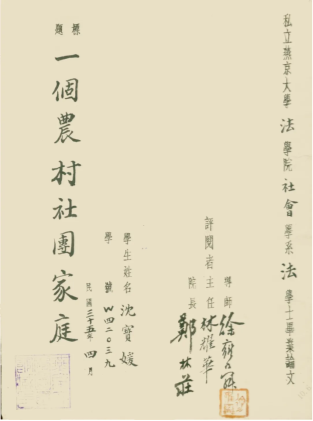 私立燕京大學法學院社會學系法學士畢業論文
評閱者
導師
主任 林雄華
院長 鄭林莊
學生姓名 沈寶媛
學號 W42039
民國三十五年四月
標題
一個農村社團家庭